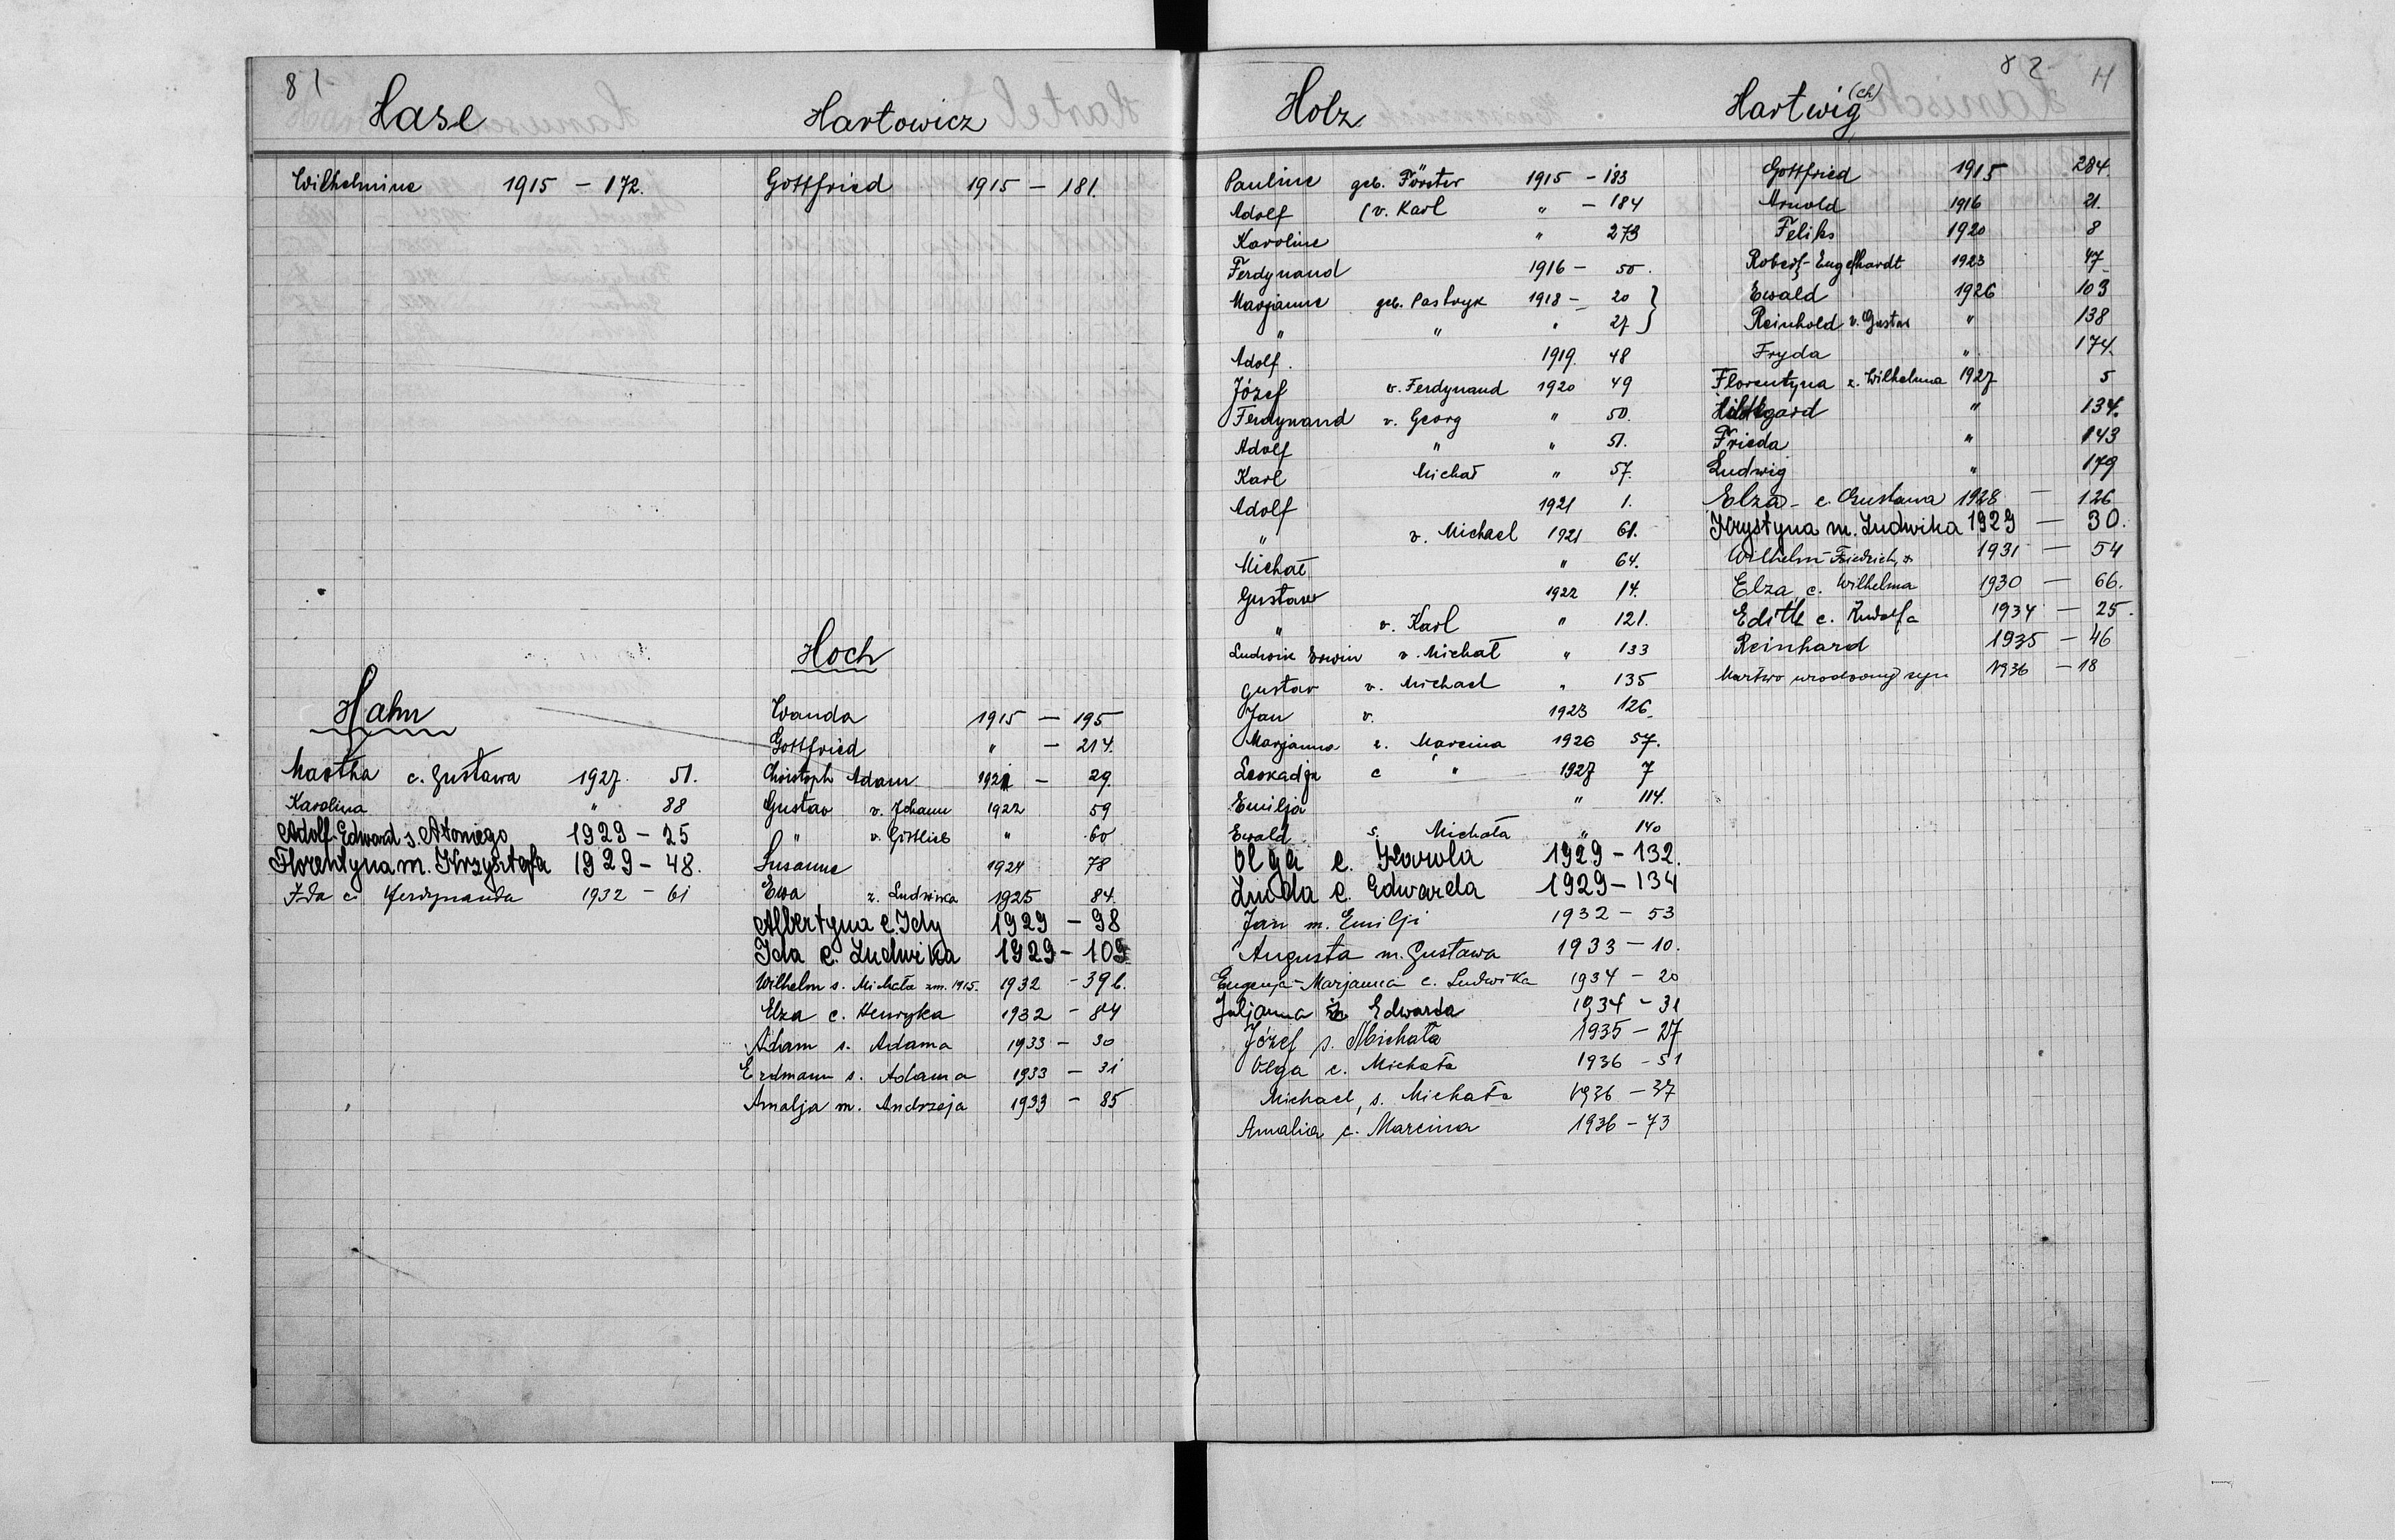 81
Hase
Wilhelmine 1915 - 172.
Hahn
Martha c. Gustawa 1927. 51.
Karolina " 88
Adolf-Edward s. 1929 - 25
Florentyna m. Krzysztofa 1929 - 48.
Ida c. Ferdynanda 1932 - 61
Hartowicz
Gottfried 1915 - 181.
Hoch
Wanda 1915 - 195
Gottfried " - 214.
Christoph Adam 1921 - 29.
Gustav v. Johann 1922 59
" v. Gottlieb " 60
Susanne 1924 78
Ewa z. Ludwika 1925 84.
Albertyna c. Idy 1929 - 98
Ida c. Ludwika 1929 - 109
Wilhelm s. Michała zm. 1915. 1932 - 396.
Elza c. Henryka 1932 - 84
Adam s. Adama 1933 - 30
Erdmann s. Adama 1933 - 31
Amalja m. Andrzeja 1933 - 85
82 H
Holz
Pauline geb. Förster 1915 - 183
Adolf (v. Karl " - 184
Karoline " 273
Ferdynand 1916 - 50.
Marjanne geb. Pastryk 1918 - 20 }
" " " 27 }
Adolf. 1919. 48
Józef v. Ferdynand 1920 49
Ferdynand v. Georg " 50.
Adolf " " 51.
Karl Michał " 57.
Adolf 1921 1.
" v. Michael 1921 61.
Michał " 64.
Gustaw 1922 14.
" v. Karl " 121.
Ludwik Erwin v. Michał " 133
Gustav v. Michael " 135
Jan v. 1923 126.
Marjanna z. Marcina 1926 57.
Leokadja c " 1927 7
Emilja " 114.
Ewald s. Michała " 140
Olga c. Karola 1929 - 132.
Lunda c. Edwarda 1929 - 134
Jan m. Emilji 1932 - 53
Augusta m. Gustawa 1933 - 10.
Eugenja-Marjanna c. Ludwika 1934 - 20
Juljanna ż. Edwarda 1934 - 31
Józef s. Michała 1935 - 27
Olga c. Michała 1936 - 51
Michael, s. Michała 1936 - 37
Amalia c. Marcina 1936 - 73
Hartwig (ch)
Gottfried 1915 284.
Arnold 1916 21.
Feliks 1920 8
Robert-Engelhardt 1923 47
Ewald 1926 103
Reinhold v. Gustav " 138
Fryda " 174.
Florentyna z. Wilhelma 1927 5
Hildegard " 134.
Frieda " 143
Ludwig " 179
Elza - c. Gustawa 1928 - 126
Krystyna m. Ludwika 1929 - 30.
Wilhelm-Friedrich, s. 1931 - 54
Elza, c. Wilhelma 1930 - 66.
Edith c. Rudolfa 1934 - 25.
Reinhard 1935 - 46
Martwo urodzony syn 1936 - 18